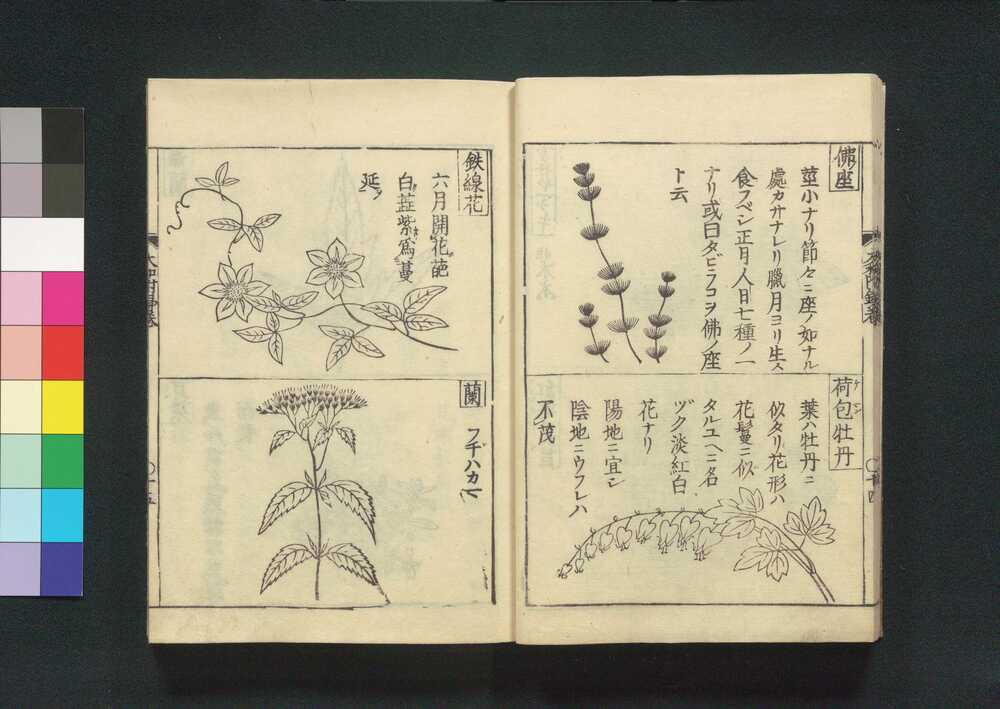 佛座
莖小ナリ節々ニ座ノ如ナル
處カサナレリ臘月ヨリ生ス
食フベシ正月人日七種ノ一
ナリ或曰タビラコヲ佛ノ座
ト云
荷包牡丹
葉ハ牡丹ニ
似タリ花形ハ
花鬘ニ似
タルユヘニ名
ヅク淡紅白
花ナリ
陽地ニ宜シ
陰地ニウフレハ
不茂
〇十四
鉄線花
六月開花葩
白蕋紫為蔓
延
蘭
フヂハカマ
〇十五